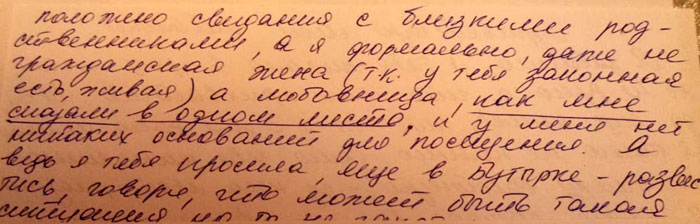 положено свидания с близкими род-
ственниками, а я формально, даже не
гражданская жена (т.к. у тебя законная
есть, живая) а любовница, как мне
сказали в одном месте, и у меня нет
никаких оснований для посещения. А
ведь я тебя просила, еще в Бутырке - разве
тись, говоря, что может быть такая
ситуация, но ты не